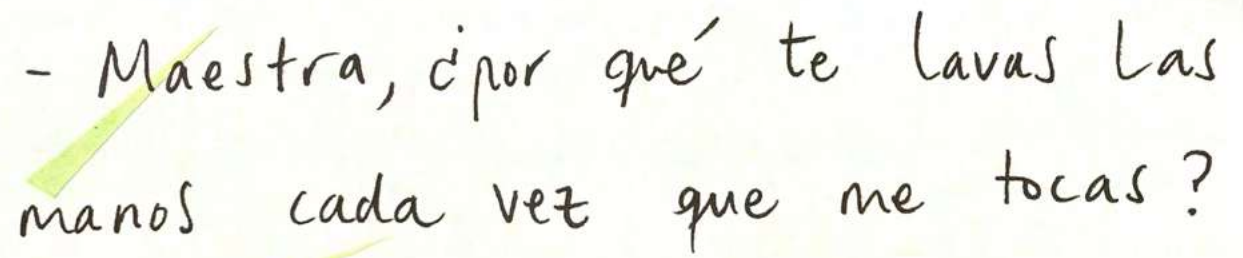 - Maestra, ¿por qué te lavas las
manos cada vez que me tocas?